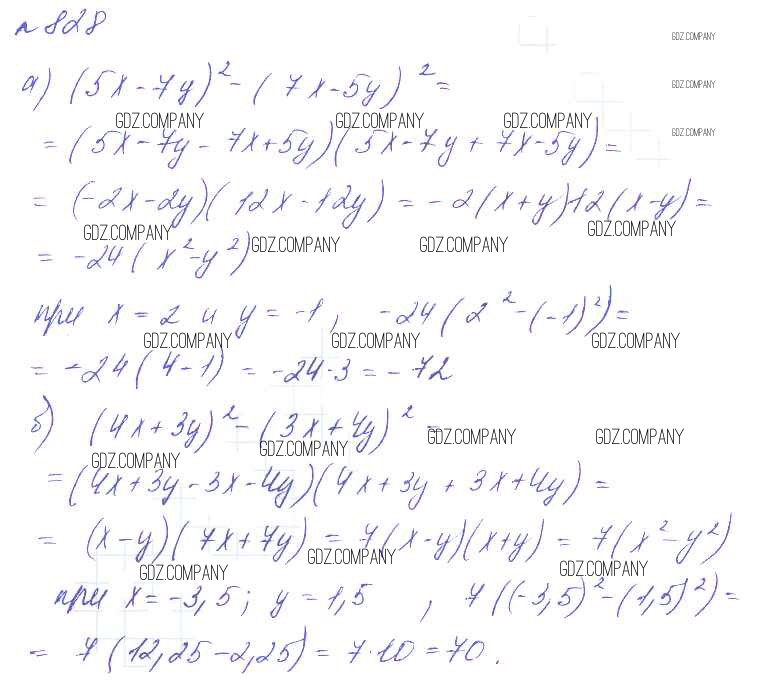 №828
GDZ.COMPANY
а) (5x-7y)²-(7x-5y)²=
GDZ.COMPANY
GDZ.COMPANY GDZ.COMPANY GDZ.COMPANY
=(5x-7y-7x+5y)(5x-7y+7x-5y)=
GDZ.COMPANY
=(-2x-2y)(12x-12y)=-2(x+y)12(x-y)=
GDZ.COMPANY GDZ.COMPANY GDZ.COMPANY GDZ.COMPANY
=-24(x²-y²)
при x=2 и y=-1, -24(2²-(-1)²)=
GDZ.COMPANY GDZ.COMPANY GDZ.COMPANY
=-24(4-1)=-24·3=-72
б) (4x+3y)²-(3x+4y)²=
GDZ.COMPANY GDZ.COMPANY GDZ.COMPANY GDZ.COMPANY
=(4x+3y-3x-4y)(4x+3y+3x+4y)=
=(x-y)(7x+7y)=7(x-y)(x+y)=7(x²-y²)
GDZ.COMPANY GDZ.COMPANY GDZ.COMPANY
при x=-3,5; y=1,5, 7((-3,5)²-(1,5)²)=
=7(12,25-2,25)=7·10=70.